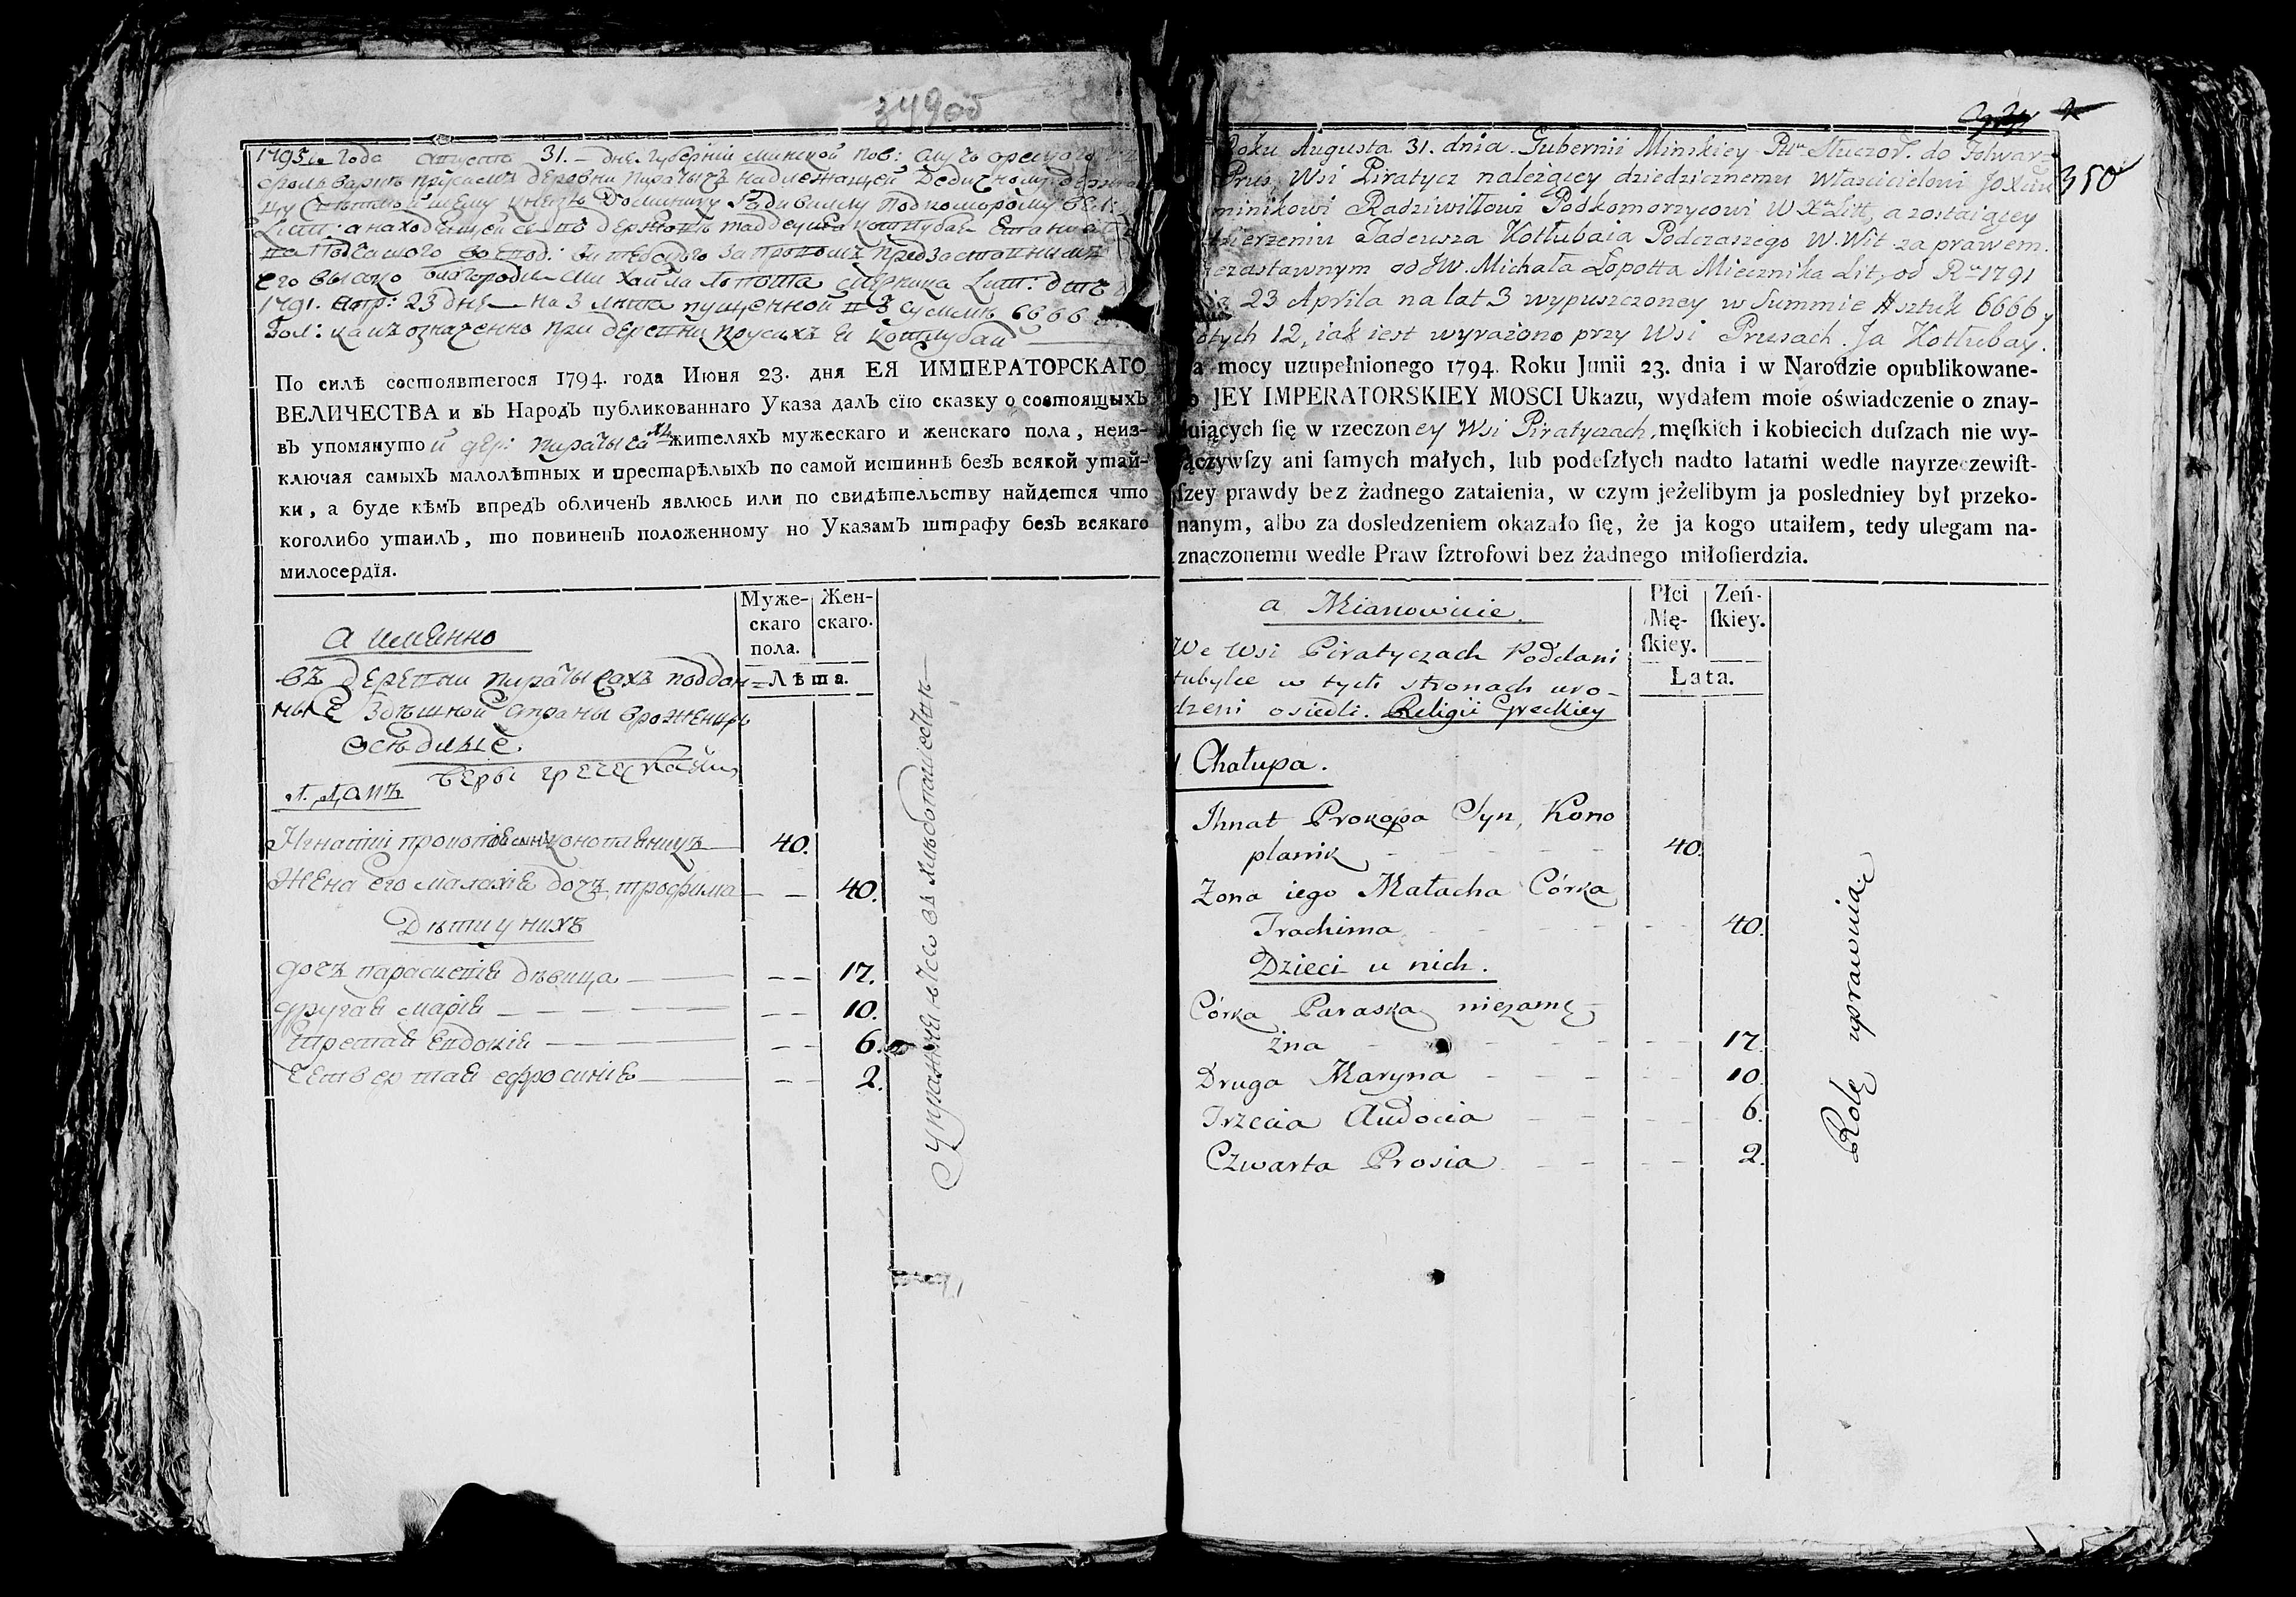 349об
1795го года августа 31. дня. Губерніи Минской пов:
фольварку Прусамъ деревни Пирачычъ надлежащей Дедичному
князю Доминику Радивиллу Подкоморому вел:
Лит: а находящейся въ держанѣ Таддеуша Котлубая
его высоко благородія Михайла Лопота Мѣчника Лит:
1791. апр: 23 дня на 3 лѣта пущенной въ суммѣ 6666
Зол: какъ означенно при деревни Прусахъ Я Котлубай
По силѣ состоявшегося 1794. года Июня 23. дня ЕЯ ИМПЕРАТОРСКАГО
ВЕЛИЧЕСТВА и въ Народъ публикованнаго Указа далъ сїю сказку о состоящыхъ
въ упомянутой дер: Пирачыcахъ жителяхъ мужескаго и женскаго пола, неиз-
ключая самыхъ малолѣтных и престарѣлыхъ по самой истиннѣ безъ всякой утай-
ки, а буде кѣмъ впредъ обличенъ явлюсь или по свидѣтельству найдется что
коголибо утаилъ, то повиненъ положенному по Указамъ штрафу безъ всякаго
милосердїя.
Муже-
скаго
пола.
Жен-
скаго.
Лѣта.
а имянно
въ деревни Пирачысахъ поддан=
ные здѣшной страны вроженцы
осѣдлые
веры греческаий
1. хата
Игнатій Прокопія сынъ Конопляникъ 40.
Жена его Малахія дочъ Трофима 40.
Дѣти у нихъ
дочъ Параскевія дѣвица 17.
другая Марія 10.
Третая Евдокія 6.
Четвертая Ефросинія 2.
Упражняются въ хлѣбопашестве
350
Roku Augusta 31. dnia. Gubernii Minskiey Ptu Słuczor. do Folwar=
Prus, Wsi Piratycz należącey dziedzicznemu Włascicielowi JoXciu
minikowi Radziwiłłowi Podkomorzycowi W. X. Litt, a zostaiącey
dzierzeniu Tadeusza Kotłubaia Podczaszego W. Wit. za prawem
zastawnym od JW. Michała Łopotta Miecznika Lit, od Ru 1791
23 Aprila na lat 3 wypuszczoney w Summie # sztuk 6666 y
złotych 12, iak iest wyrażono przy Wsi Prusach. Ja Kotłubay.
Na mocy uzupełnionego 1794. Roku Junii 23. dnia i w Narodzie opublikowane-
go JEY IMPERATORSKIEY MOSCI Ukazu, wydałem moie oświadczenie o znay-
duiących ſię w rzeczoney Wsi Piratyczach, męſkich i kobiecich duſzach nie wy-
łączywſzy ani ſamych małych, lub podeſzłych nadto latami wedle nayrzeczewiſt-
ſzey prawdy bez żadnego zataienia, w czym jeżelibym ja posledniey był przeko-
nanym, albo za dosledzeniem okazało ſię, że ja kogo utaiłem, tedy ulegam na-
znaczonemu wedle Praw ſztrofowi bez żadnego miłoſierdzia.
Płci
Mę-
ſkiey.
Zeń-
ſkiey.
Lata.
a Mianowicie.
We Wsi Piratyczach Poddani
tubylce w tych stronach uro-
dzeni osiedli. Religii Greckiey
1. Chałupa.
Ihnat Prokopa Syn, Kono
planik 40.
Zona iego Małacha Córka
Trachima 40.
Dzieci u nich.
Córka Paraska niezamę-
żna 17
Druga Maryna 10
Trzecia Audocia 6.
Czwarta Prosia 2.
Rolę uprawuią